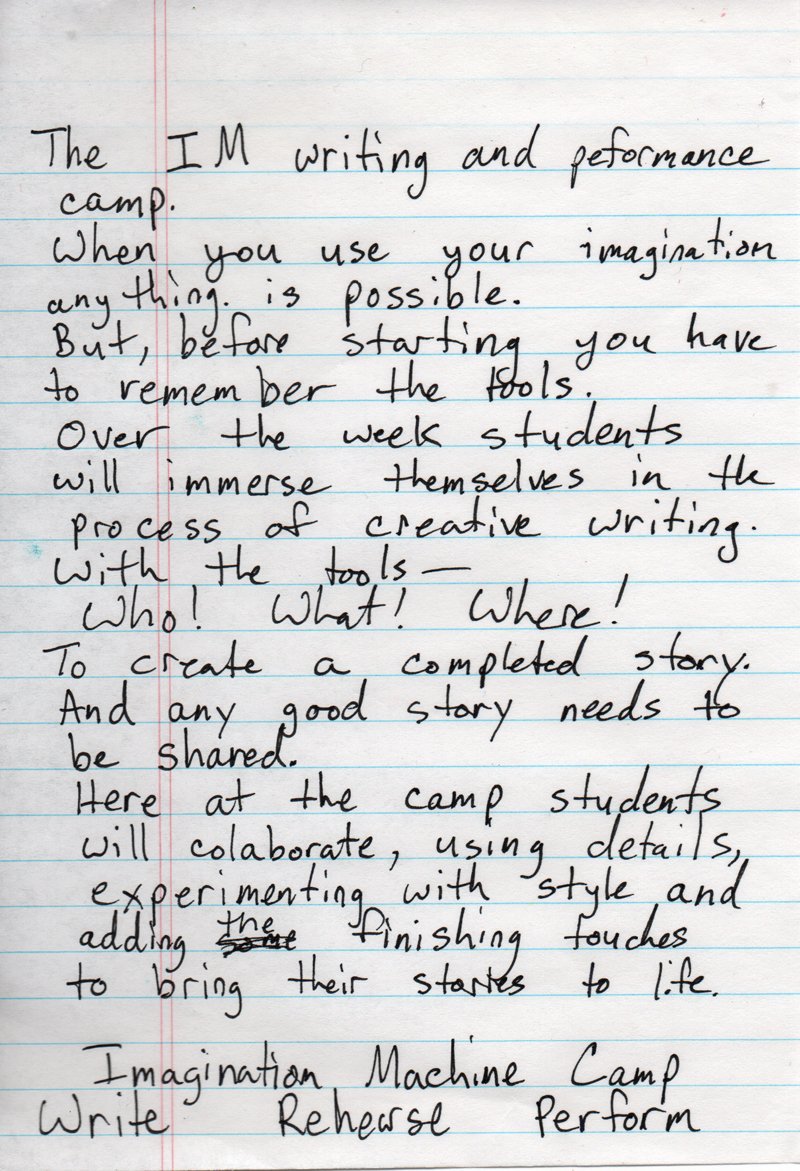 The IM writing and peformance
camp.
When you use your imagination
anything. is possible.
But, before starting you have
to remember the tools.
Over the week students
will immerse themselves in the
process of creative writing.
With the tools—
Who! What! Where!
To create a completed story.
And any good story needs to
be shared.
Here at the camp students
will colaborate, using details,
experimenting with style and
adding the finishing touches
to bring their stories to life.
Imagination Machine Camp
Write Rehearse Perform